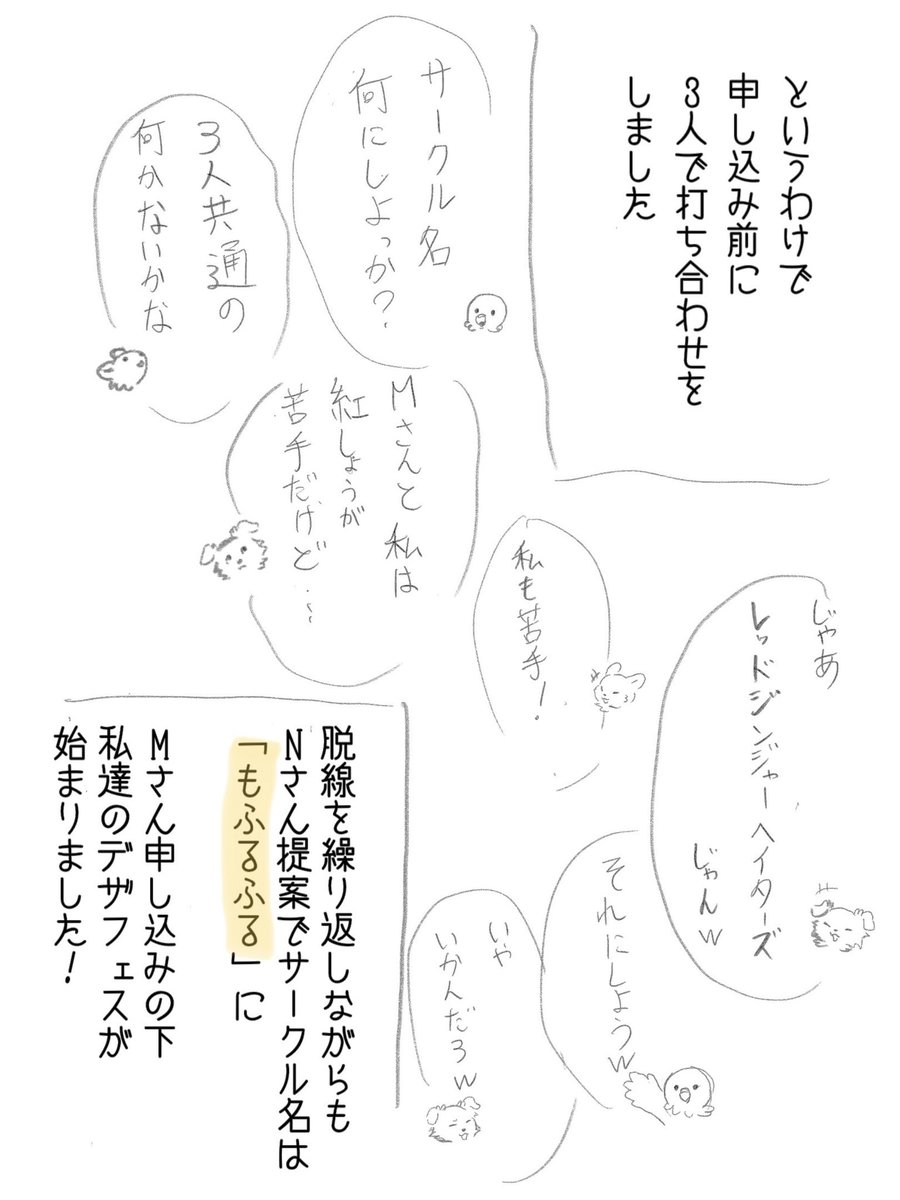 というわけで
申し込み前に
3人で打ち合わせを
しました
サークル名
何にしよっか?
3人共通の
何かないかな
Mさんと私は
紅しょうが
苦手だけど…
私も苦手!
じゃあ
レッドジンジャーヘイターズ
じゃんw
それにしようw
いや
いかんだろw
脱線を繰り返しながらも
Nさん提案でサークル名は
「もふるふる」に
Mさん申し込みの下
私達のデザフェスが
始まりました!